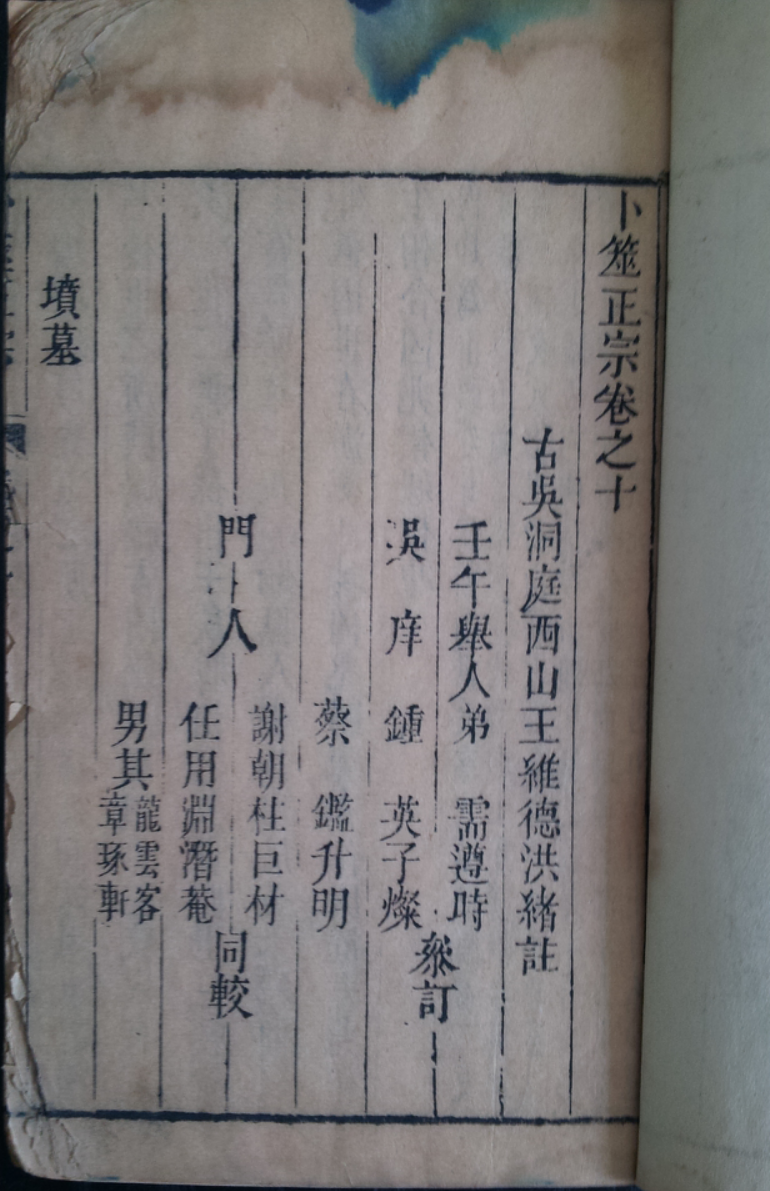 卜筮正宗卷之十
古吳洞庭西山王維德洪緒註
壬午舉人弟 需遵時
吳庠 鍾英子燦
叅訂
蔡鑑升明
謝朝柱巨材
門人
任用淵潛菴
同較
男其龍雲客
章琢軒
墳墓